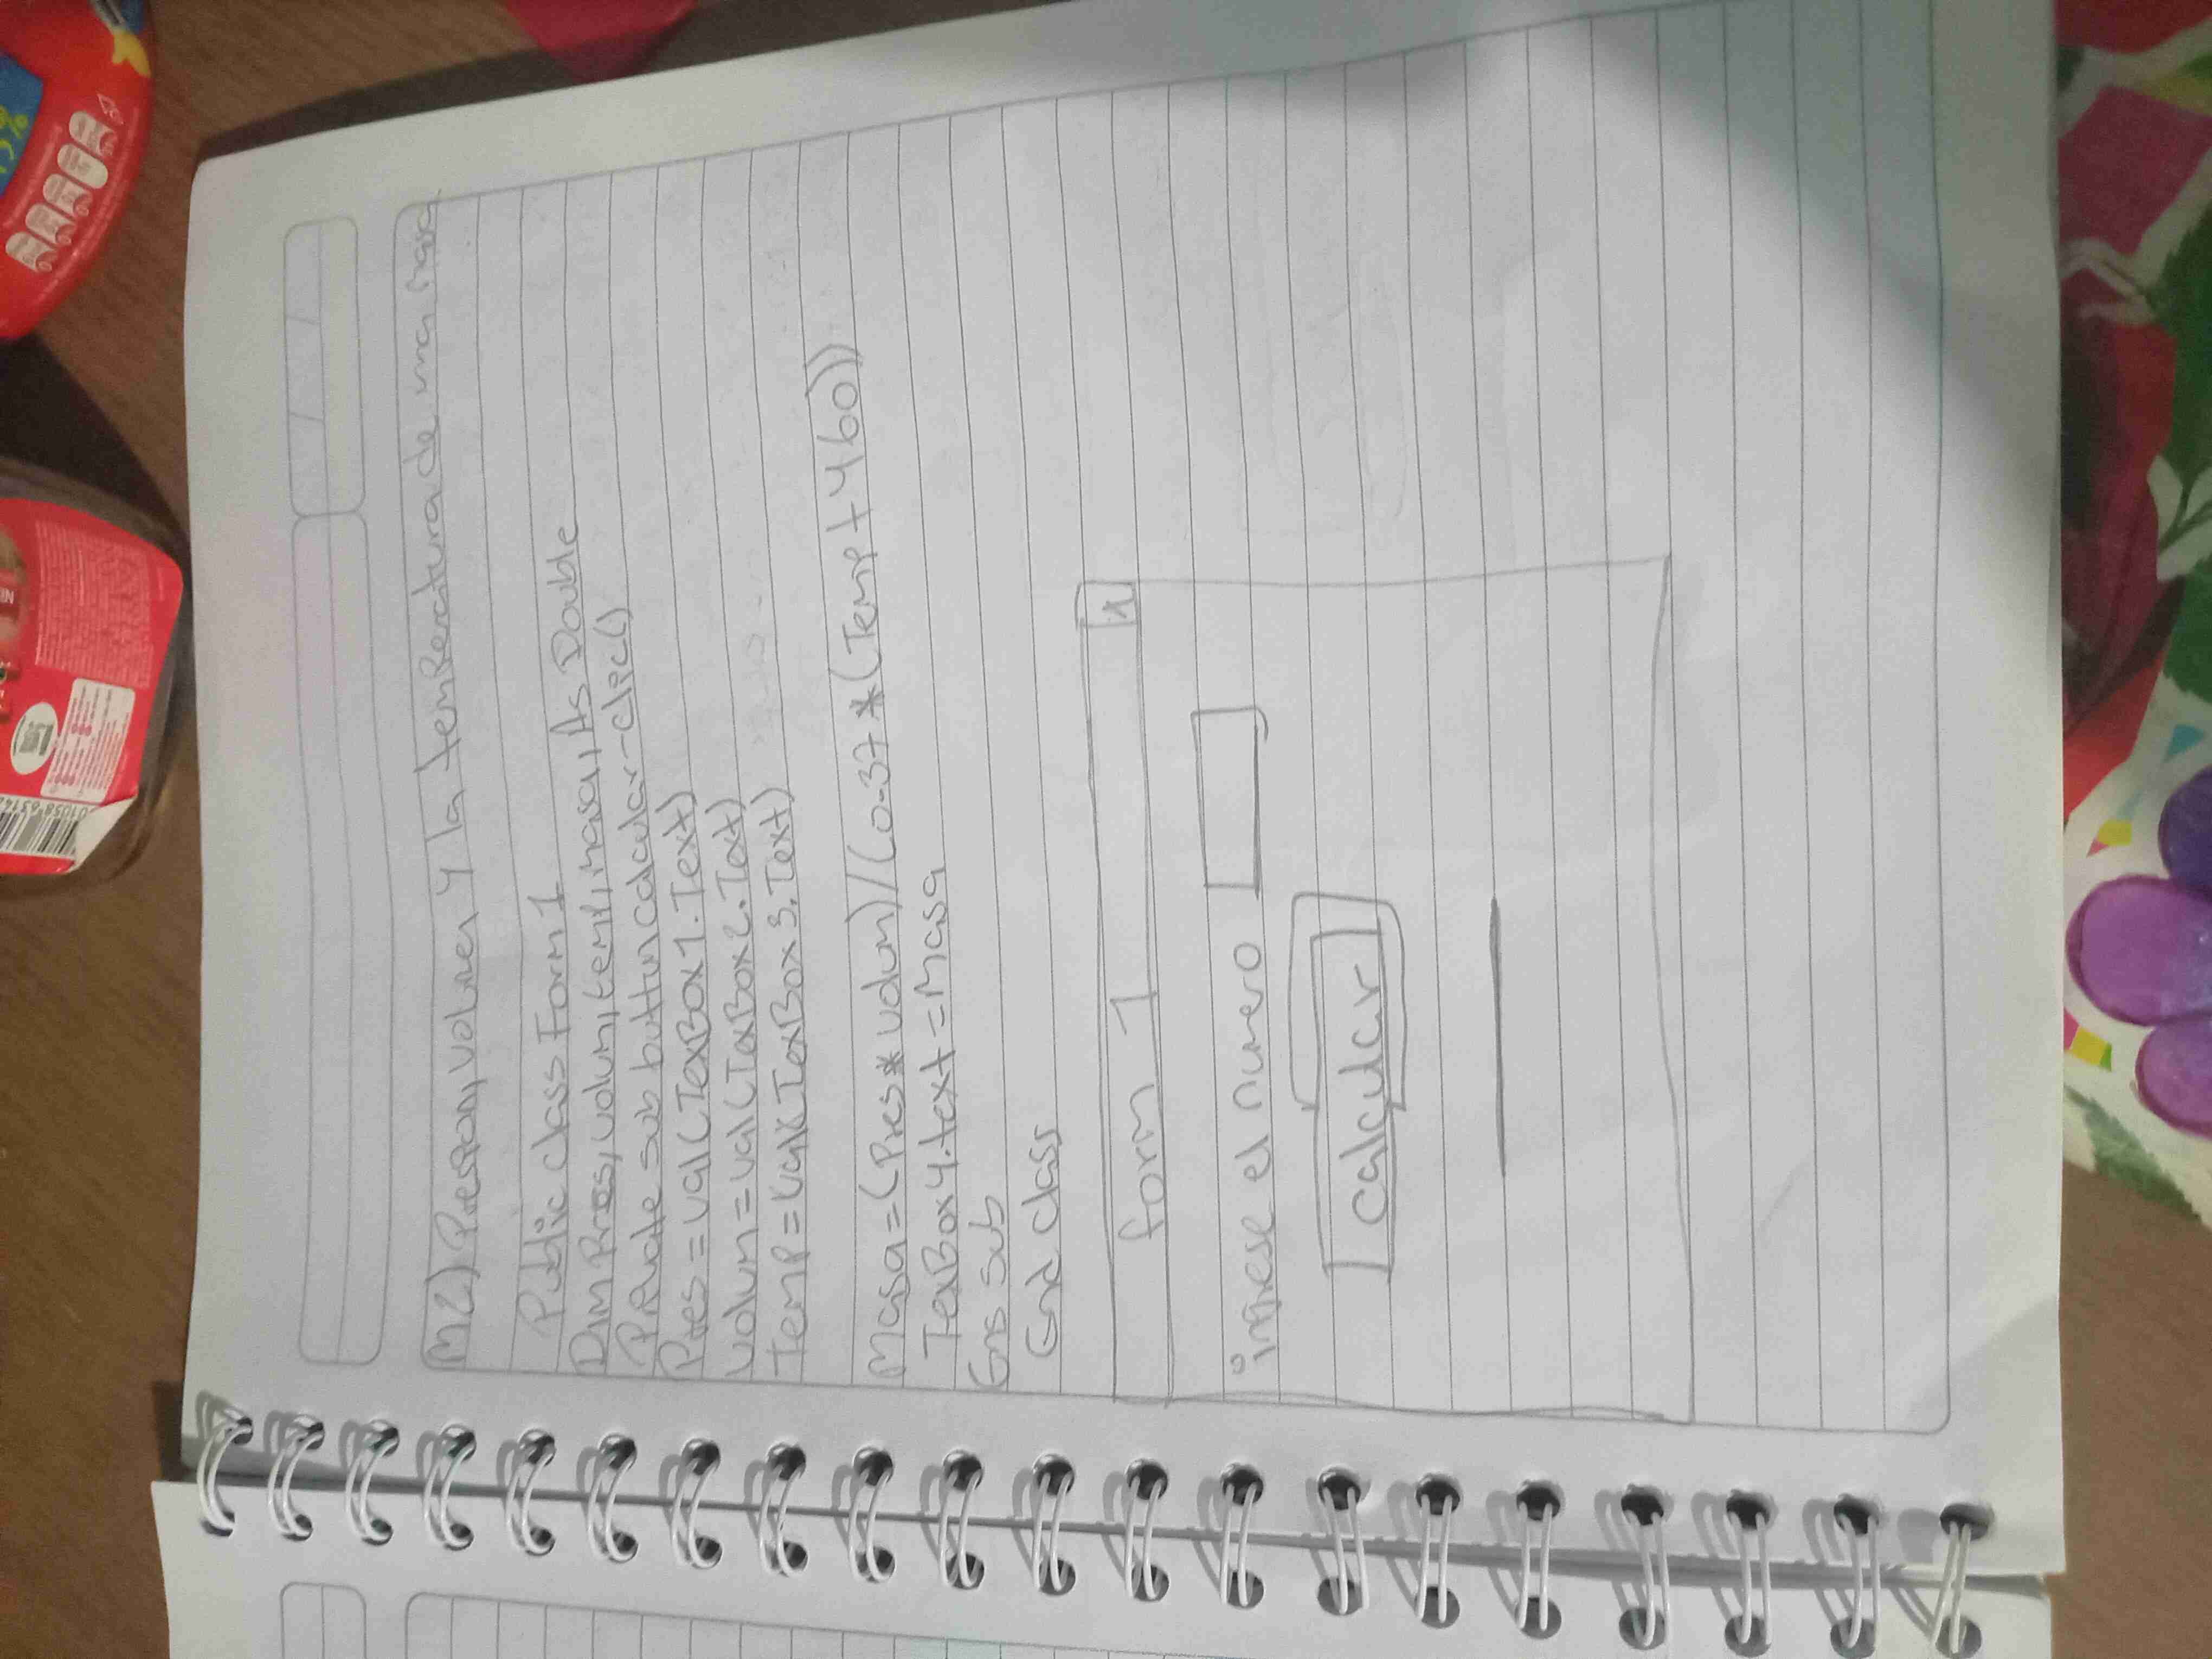 M2) Presion, volumen y la temperatura de una masa
Public class Form 1
Dim Pres, volum, temp, masa, As Double
Private sub button calcular-clic()
Pres = val (TexBox1.Text)
volum = val (TexBox2.Text)
Temp = val (TexBox3.Text)
Masa = (Pres * volum) / (0.37 * (Temp + 460))
TexBox4.text = Masa
Ens sub
End class
form 1 x
ingrese el numero
calcular